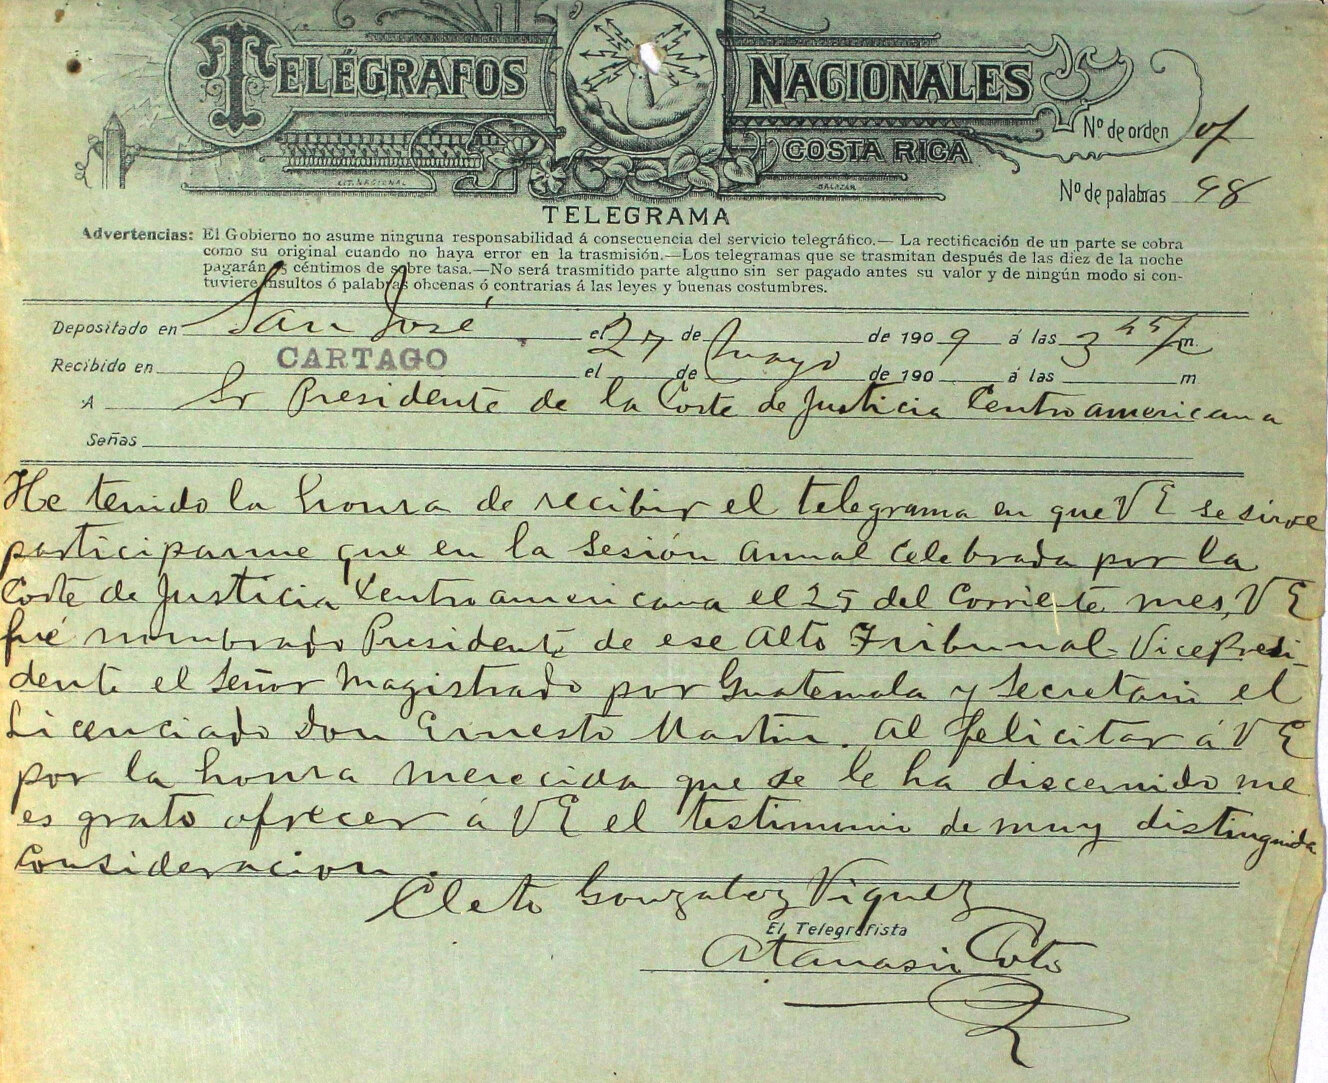 TELÉGRAFOS NACIONALES
COSTA RICA
Nº de orden of
LIT. NACIONAL
SALAZAR
Nº de palabras 98
TELEGRAMA
Advertencias: El Gobierno no asume ninguna responsabilidad á consecuencia del servicio telegráfico.— La rectificación de un parte se cobra
como su original cuando no haya error en la trasmisión.—Los telegramas que se trasmitan después de las diez de la noche
pagarán céntimos de sobre tasa.—No será trasmitido parte alguno sin ser pagado antes su valor y de ningún modo si con-
tuviere insultos ó palabras obcenas ó contrarias á las leyes y buenas costumbres.
Depositado en San José el 27 de Mayo de 1909 á las 3 45/ m.
Recibido en CARTAGO el de de 190 á las m
A Sr Presidente de la Corte de Justicia Centroamericana
Señas
He tenido la honra de recibir el telegrama en que V E se sirve
participarme que en la sesión anual celebrada por la
Corte de Justicia Centroamericana el 25 del corriente mes, V E
fué nombrado Presidente de ese Alto Tribunal. Vice Presi-
dente el Señor Magistrado por Guatemala y Secretario el
Licenciado Don Ernesto Martin. Al felicitar á V E
por la honra merecida que se le ha discernido me
es grato ofrecer á V E el testimonio de muy distinguida
consideracion.
Cleto Gonzalez Viquez
El Telegrafista
Atanasio Coto